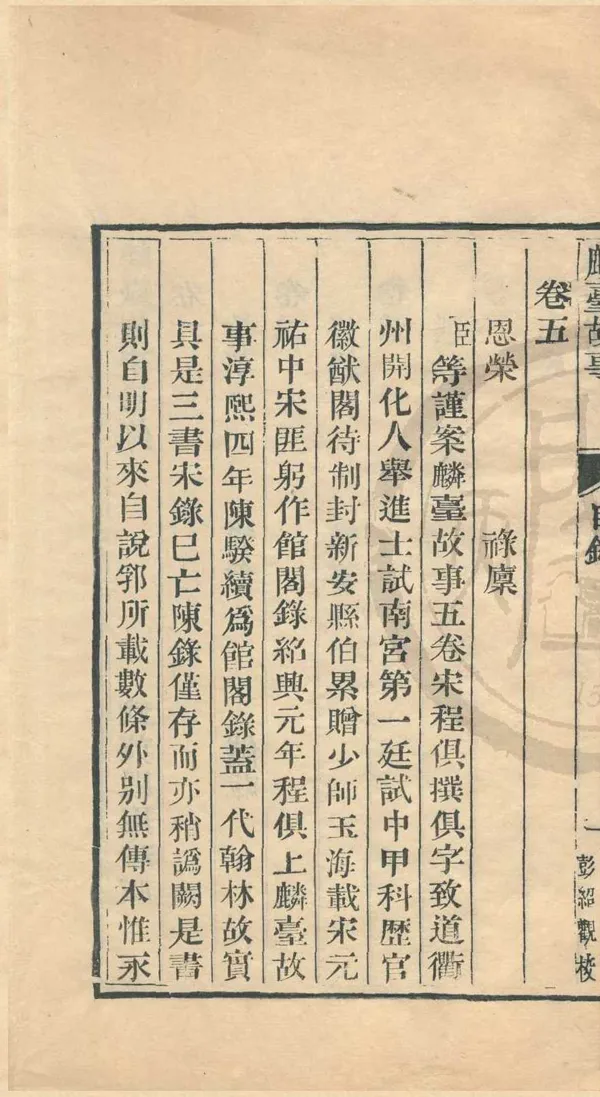 麟臺故事 目錄 一 彭紹觀校
卷五
恩榮 祿廩
臣等謹案麟臺故事五卷宋程俱撰俱字致道衢
州開化人舉進士試南宮第一廷試中甲科歴官
徽猷閣待制封新安縣伯累贈少師玉海載宋元
祐中宋匪躬作館閣錄紹興元年程俱上麟臺故
事淳熙四年陳騤續爲館閣錄蓋一代翰林故實
具是三書宋錄巳亡陳錄僅存而亦稍譌闕是書
則自明以來自說郛所載數條外别無傳本惟永